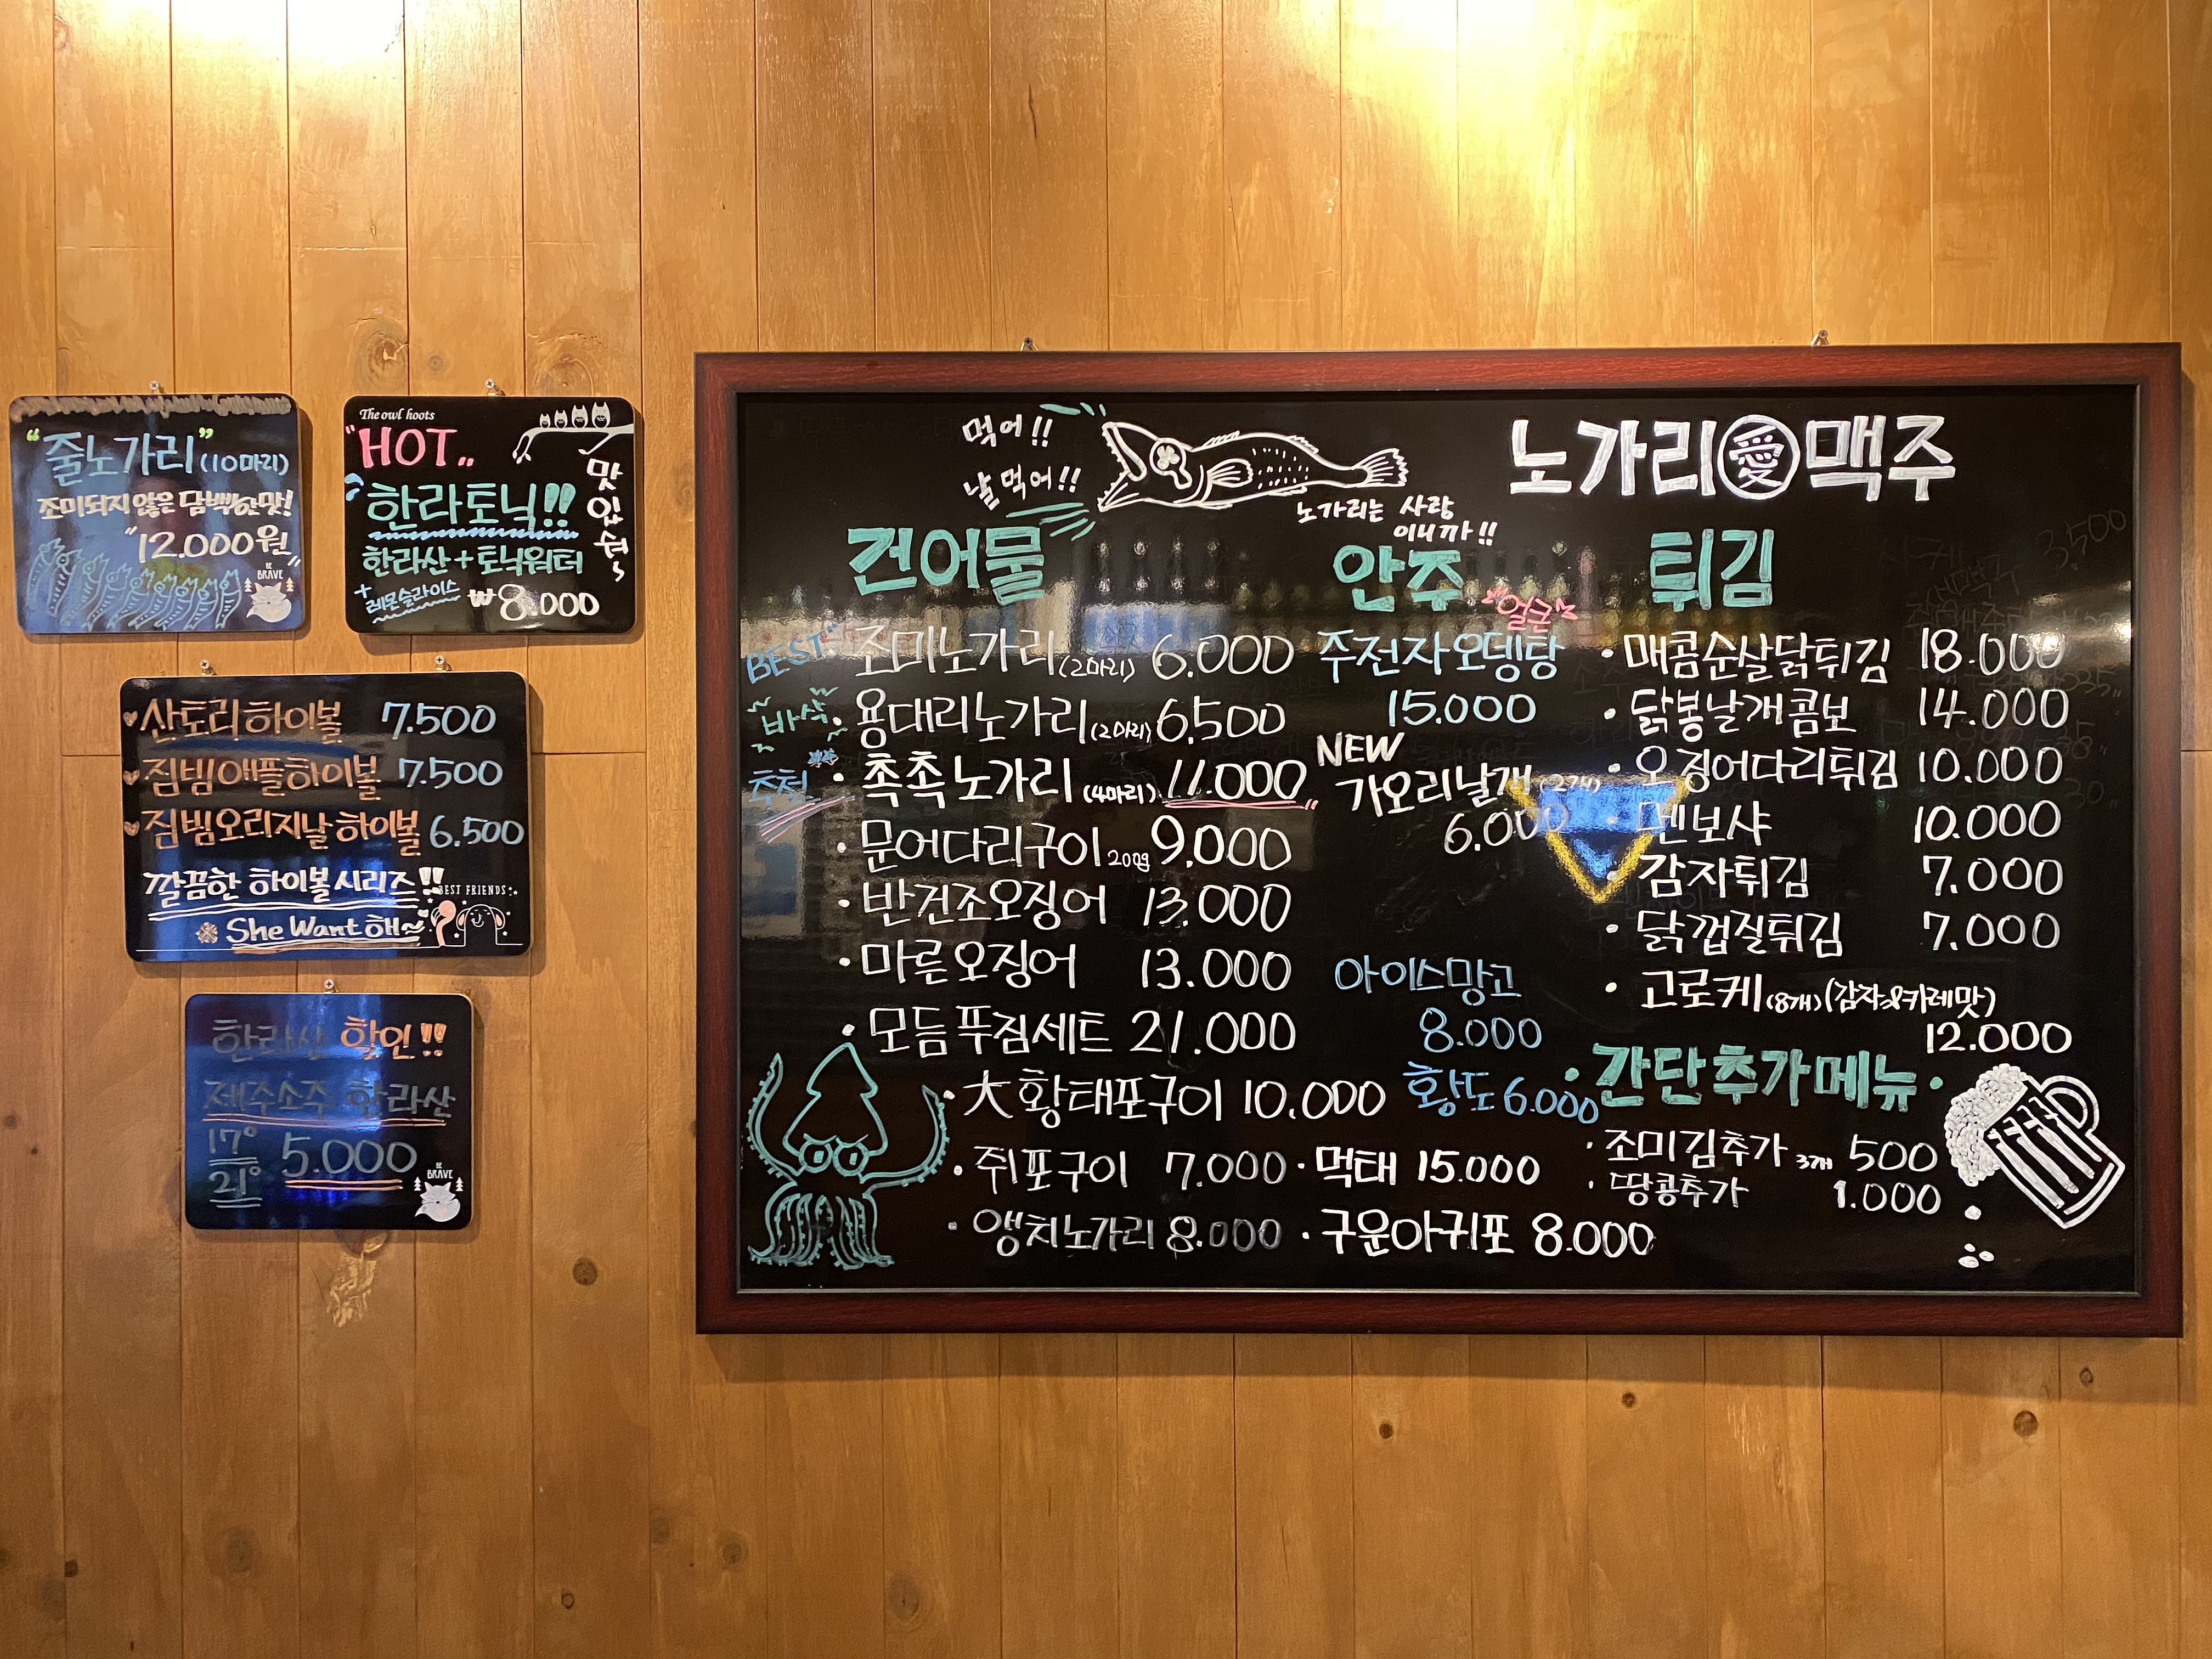 “줄노가리” (10마리)
조미되지 않은 담백한맛!
"12.000원"
BE BRAVE
The owl hoots
"HOT..
한라토닉!!
맛있숑~
한라산+토닉워터
+레몬슬라이스 ₩8.000
산토리하이볼 7.500
짐빔애플하이볼 7.500
짐빔오리지날하이볼 6.500
깔끔한 하이볼 시리즈!!
BEST FRIENDS
She Want 해~
한라산 할인!!
제주소주 한라산
17°
21° 5.000
BE BRAVE
먹어!!
날 먹어!!
노가리는 사랑
이니까!!
노가리 愛 맥주
건어물
BEST · 조미노가리 (2마리) 6.000
바삭 · 용대리노가리 (2마리) 6.500
추천 · 촉촉노가리 (4마리) 11.000
· 문어다리구이 200g 9.000
· 반건조오징어 13.000
· 마른오징어 13.000
· 모듬푸짐세트 21.000
· 大황태포구이 10.000
· 쥐포구이 7.000
· 앵치노가리 8.000
안주
얼큰
주전자오뎅탕
15.000
NEW
가오리날개 (2개)
6.000
아이스망고
8.000
황도 6.000
· 먹태 15.000
· 구운아귀포 8.000
튀김
· 매콤순살닭튀김 18.000
· 닭봉날개콤보 14.000
· 오징어다리튀김 10.000
· 멘보샤 10.000
· 감자튀김 7.000
· 닭껍질튀김 7.000
· 고로케 (8개) (감자&카레맛)
12.000
· 간단추가메뉴 ·
· 조미김추가 3개 500
· 땅콩추가 1.000